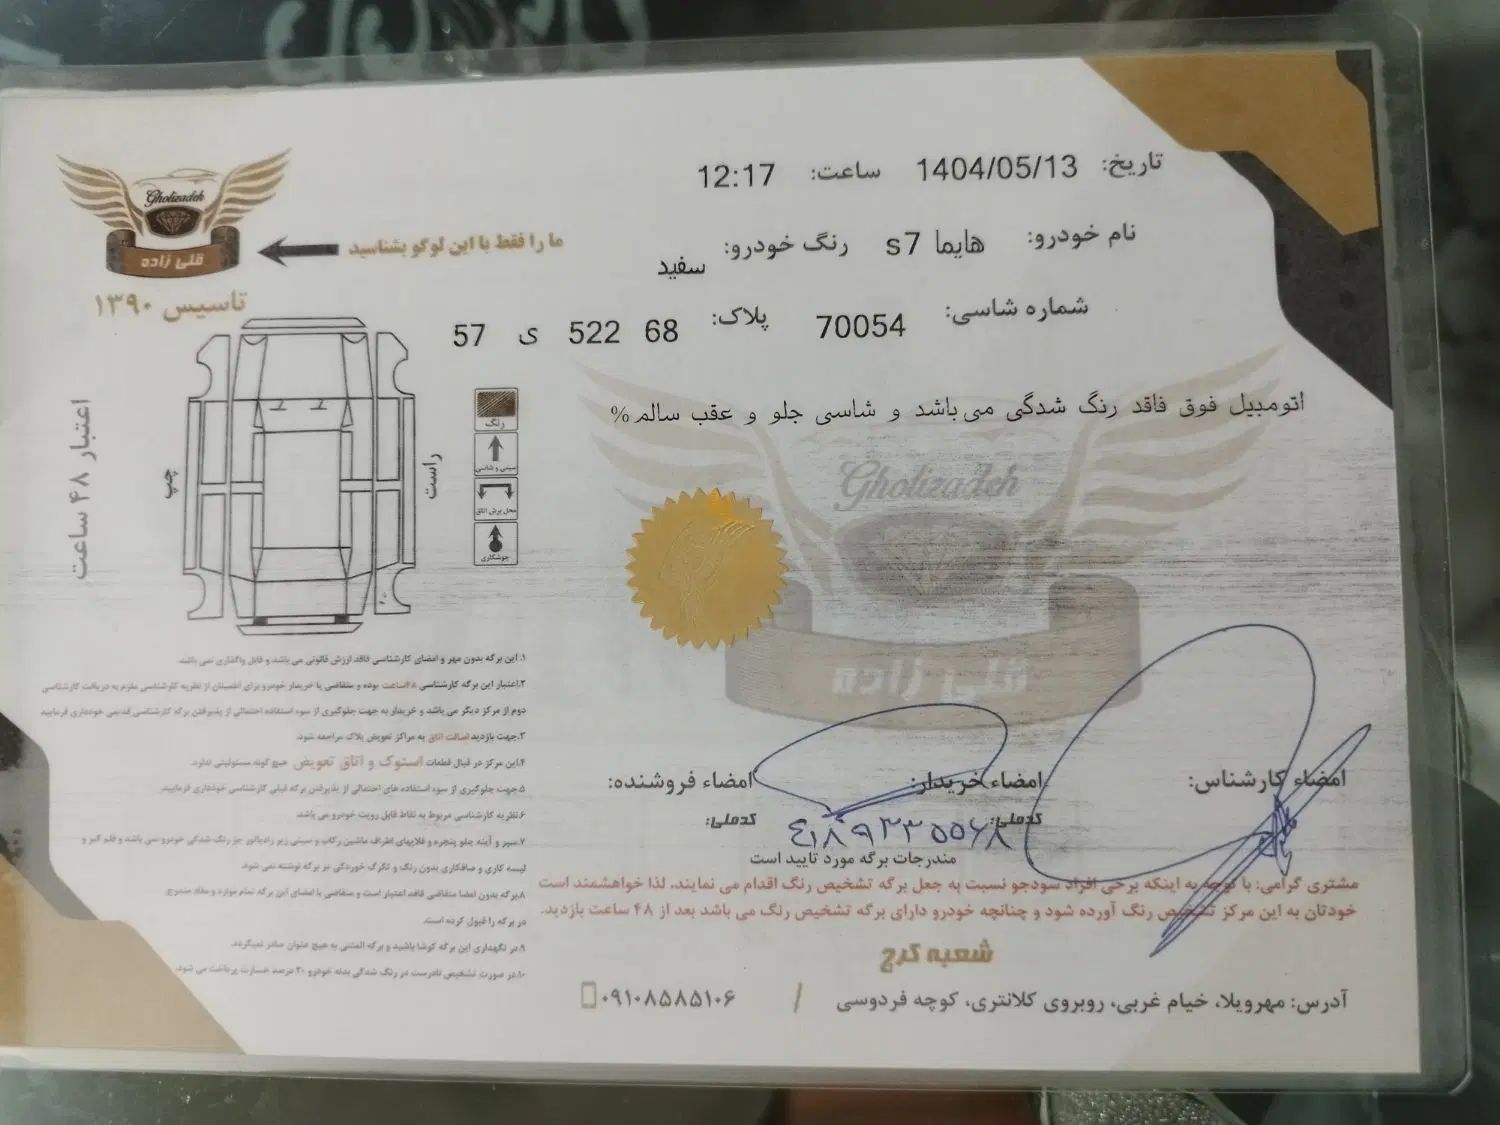 تاریخ: 1404/05/13 ساعت: 12:17
نام خودرو: هایما s7 رنگ خودرو: سفید
شماره شاسی: 70054 پلاک: 68 522 ی 57
اتومبیل فوق فاقد رنگ شدگی می باشد و شاسی جلو و عقب سالم%
Gholizadeh
قلی زاده
ما را فقط با این لوگو بشناسید
تاسیس ۱۳۹۰
اعتبار ۴۸ ساعت
چپ
راست
رنگ
سینی و شاسی
محل برش اتاق
جوشکاری
Gholizadeh
قلی زاده
۱. این برگه بدون مهر و امضای کارشناسی فاقد ارزش قانونی می باشد و قابل واگذاری نمی باشد.
۲.اعتبار این برگه کارشناسی ۴۸ساعت بوده و متقاضی یا خریدار خودرو برای اطمینان از نظریه کارشناسی ملزم به دریافت کارشناسی
دوم از مرکز دیگر می باشد و خریدار به جهت جلوگیری از سوء استفاده احتمالی از پذیرفتن برگه کارشناسی قدیمی خودداری فرمایید
۳.جهت بازدید اصالت اتاق به مراکز تعویض پلاک مراجعه شود.
۴.این مرکز در قبال قطعات استوک و اتاق تعویض هیچ گونه مسئولیتی ندارد.
۵.جهت جلوگیری از سوء استفاده های احتمالی از پذیرفتن برگه قبلی کارشناسی خودداری فرمایید.
۶.نظریه کارشناسی مربوط به نقاط قابل رویت خودرو می باشد.
۷.سپر و آینه جلو پنجره و قلابهای اطراف ماشین رکاب و سینی زیر رادیاتور جز رنگ شدگی خودرو نمی باشد و قلم گیر و
لیسه کاری و صافکاری بدون رنگ و تگرگ خوردگی در برگه نوشته نمی شود.
۸.برگه بدون امضا متقاضی فاقد اعتبار است و متقاضی با امضای این برگه تمام موارد و مفاد مندرج
در برگه را قبول کرده است.
۹.در نگهداری این برگه کوشا باشید و برگه المثنی به هیچ عنوان صادر نمیگردد.
۱۰.در صورت تشخیص نادرست در رنگ شدگی بدنه خودرو ۲۰ درصد خسارت پرداخت می شود.
امضاء کارشناس: امضاء خریدار: امضاء فروشنده:
کدملی: ۴۱۸۹۳۳۰۵۵۶۸ کدملی:
مندرجات برگه مورد تایید است
مشتری گرامی: با توجه به اینکه برخی افراد سودجو نسبت به جعل برگه تشخیص رنگ اقدام می نمایند.. لذا خواهشمند است
خودتان به این مرکز تشخیص رنگ آورده شود و چنانچه خودرو دارای برگه تشخیص رنگ می باشد بعد از ۴۸ ساعت بازدید.
شعبه کرج
آدرس: مهرویلا، خیام غربی، روبروی کلانتری، کوچه فردوسی / ۰۹۱۰۸۵۸۵۱۰۶